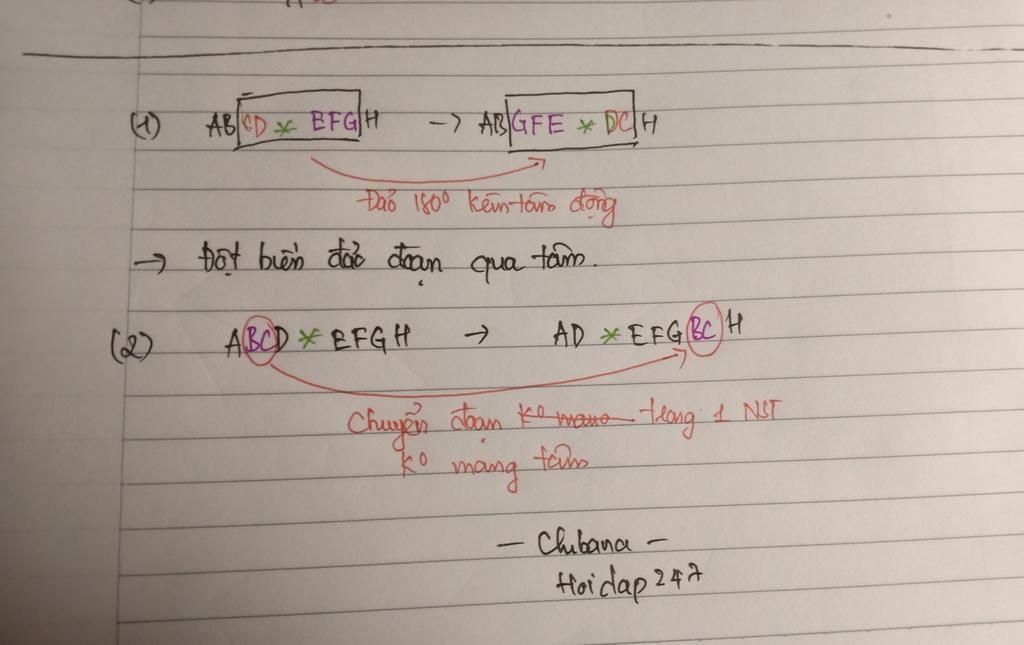 (1) AB CD * EFG H → AB GFE * DC H
Đảo 180° kèm tâm động
→ Đột biến đảo đoạn qua tâm.
(2) ABCD * EFGH → AD * EFGBCH
Chuyển đoạn k° mang trong 1 NST
k° mang tâm
- Chibana -
Hoidap247